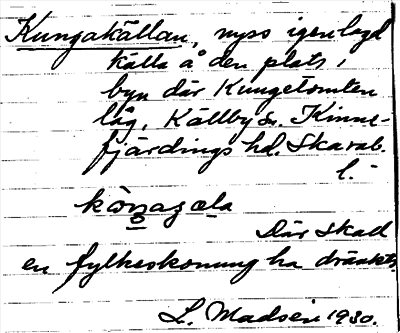 Kungakällan, nyss igenlagd
källa å den plats i
byn där Kungetomten
låg, Källby sn. Kinne-
fjärdings hd. Skarab.
l.
Där skall
en fylkeskonung ha dränkts.
L. Madsén 1930.